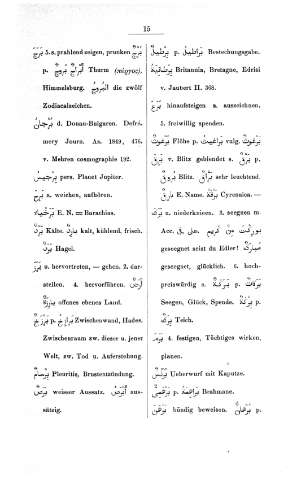 15
بَرَّجَ 5. s. prahlend zeigen, prunken بُرْج
p. بُرُوج أَبْرَاج Thurm (πύργος),
Himmelsburg. البُرُوج die zwölf
Zodiacalzeichen.
بُرْجَان d. Donau-Bulgaren. Defré-
mery Journ. As. 1849, 476.
v. Mehren cosmographie 192.
بِرْجِيس p. Planet Jupiter.
بَرِحَ s. weichen, aufhören.
E. N. = Barachias.
بَرْد Kälte. بَارِد kalt, kühlend, frisch.
بَرَد Hagel.
بَرَزَ u. hervortreten, — gehen. 2. dar-
stellen. 4. hervorführen.
offenes ebenes Land.
بَرْزَخ p. بَرَازِخ Zwischenwand, Hades.
Zwischenraum zw. dieser u. jener
Welt, zw. Tod u. Auferstehung.
بِرْسَام Pleuritis, Brustentzündung.
بَرَص weisser Aussatz. أَبْرَص aus-
sätzig.
بِرْطِيل p. بَرَاطِيل Bestechungsgabe.
بِرْطَانِيَة Britannia, Bretagne, Edrisi
v. Jaubert II. 368.
بَرَعَ hinaufsteigen a. auszeichnen.
5. freiwillig spenden.
بُرْغُوث Flöhe p. بَرَاغِيث vulg. بَرْغُوت
بَرِقَ v. Blitz geblendet s. بَرْق p.
بُرُوق Blitz. بَرَّاق sehr leuchtend.
E. Name. بَرْقَة Cyrenaica. —
بَرَكَ v. niederknieen. 3. segnen m.
Acc. على, في. بوركت من كريم
gesegnet seist du Edler! مُبَارَك
gesegnet, glücklich. 6. hoch-
preiswürdig s. بَرَكَة p. بَرَكَات
Segen, Glück, Spende. بِرْكَة p.
بِرَك Teich.
4. festigen, Tüchtiges wirken,
planen.
بُرْنُس Ueberwurf mit Kapuze.
p. بَرَاهِمَة Brahmane.
بَرْهَنَ bündig beweisen. بُرْهَان p.